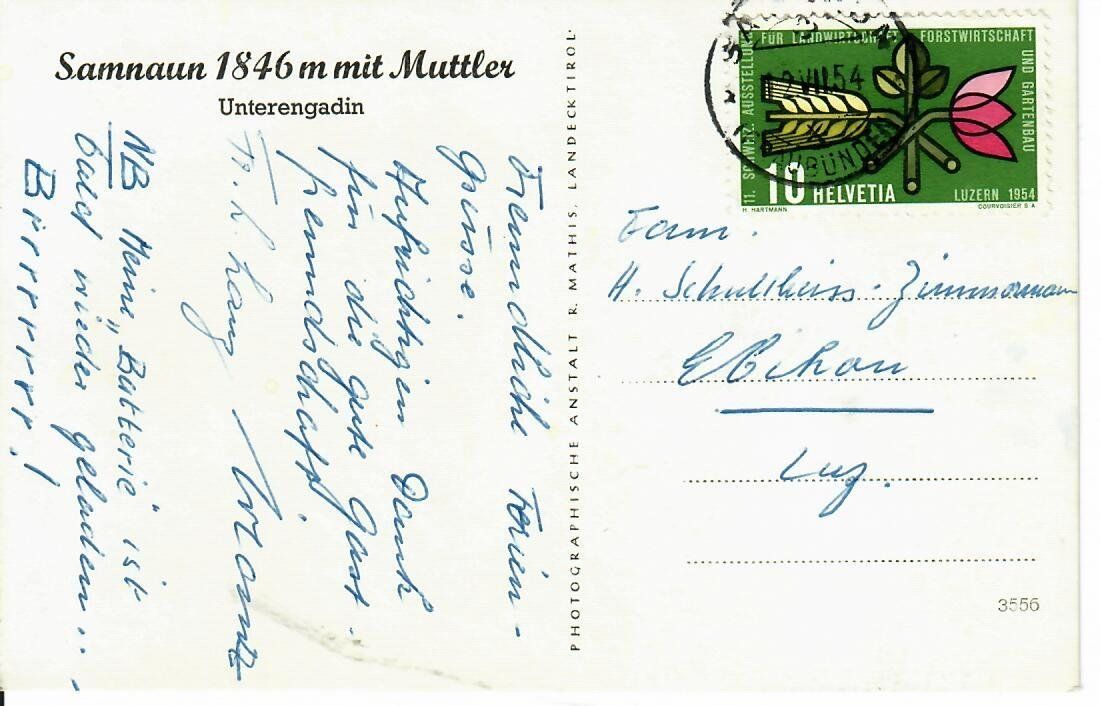 Samnaun 1846 m mit Muttler
Unterengadin
Freundliche Ferien-
grüsse.
Aufrichtigen Dank
für die gute Gast-
freundschaft.
NB Meine „Batterie" ist
bald wieder geladen...
Brrrrrr!
PHOTOGRAPHISCHE ANSTALT R. MATHIS, LANDECK TIROL.
11. SCHWEIZ. AUSSTELLUNG FÜR LANDWIRTSCHAFT FORSTWIRTSCHAFT UND GARTENBAU
LUZERN 1954
10 HELVETIA
H. HARTMANN
COURVOISIER S A
VII.54
Fam.
H. Schultheiss-Zimmermann
Ebikon
Luz.
3556